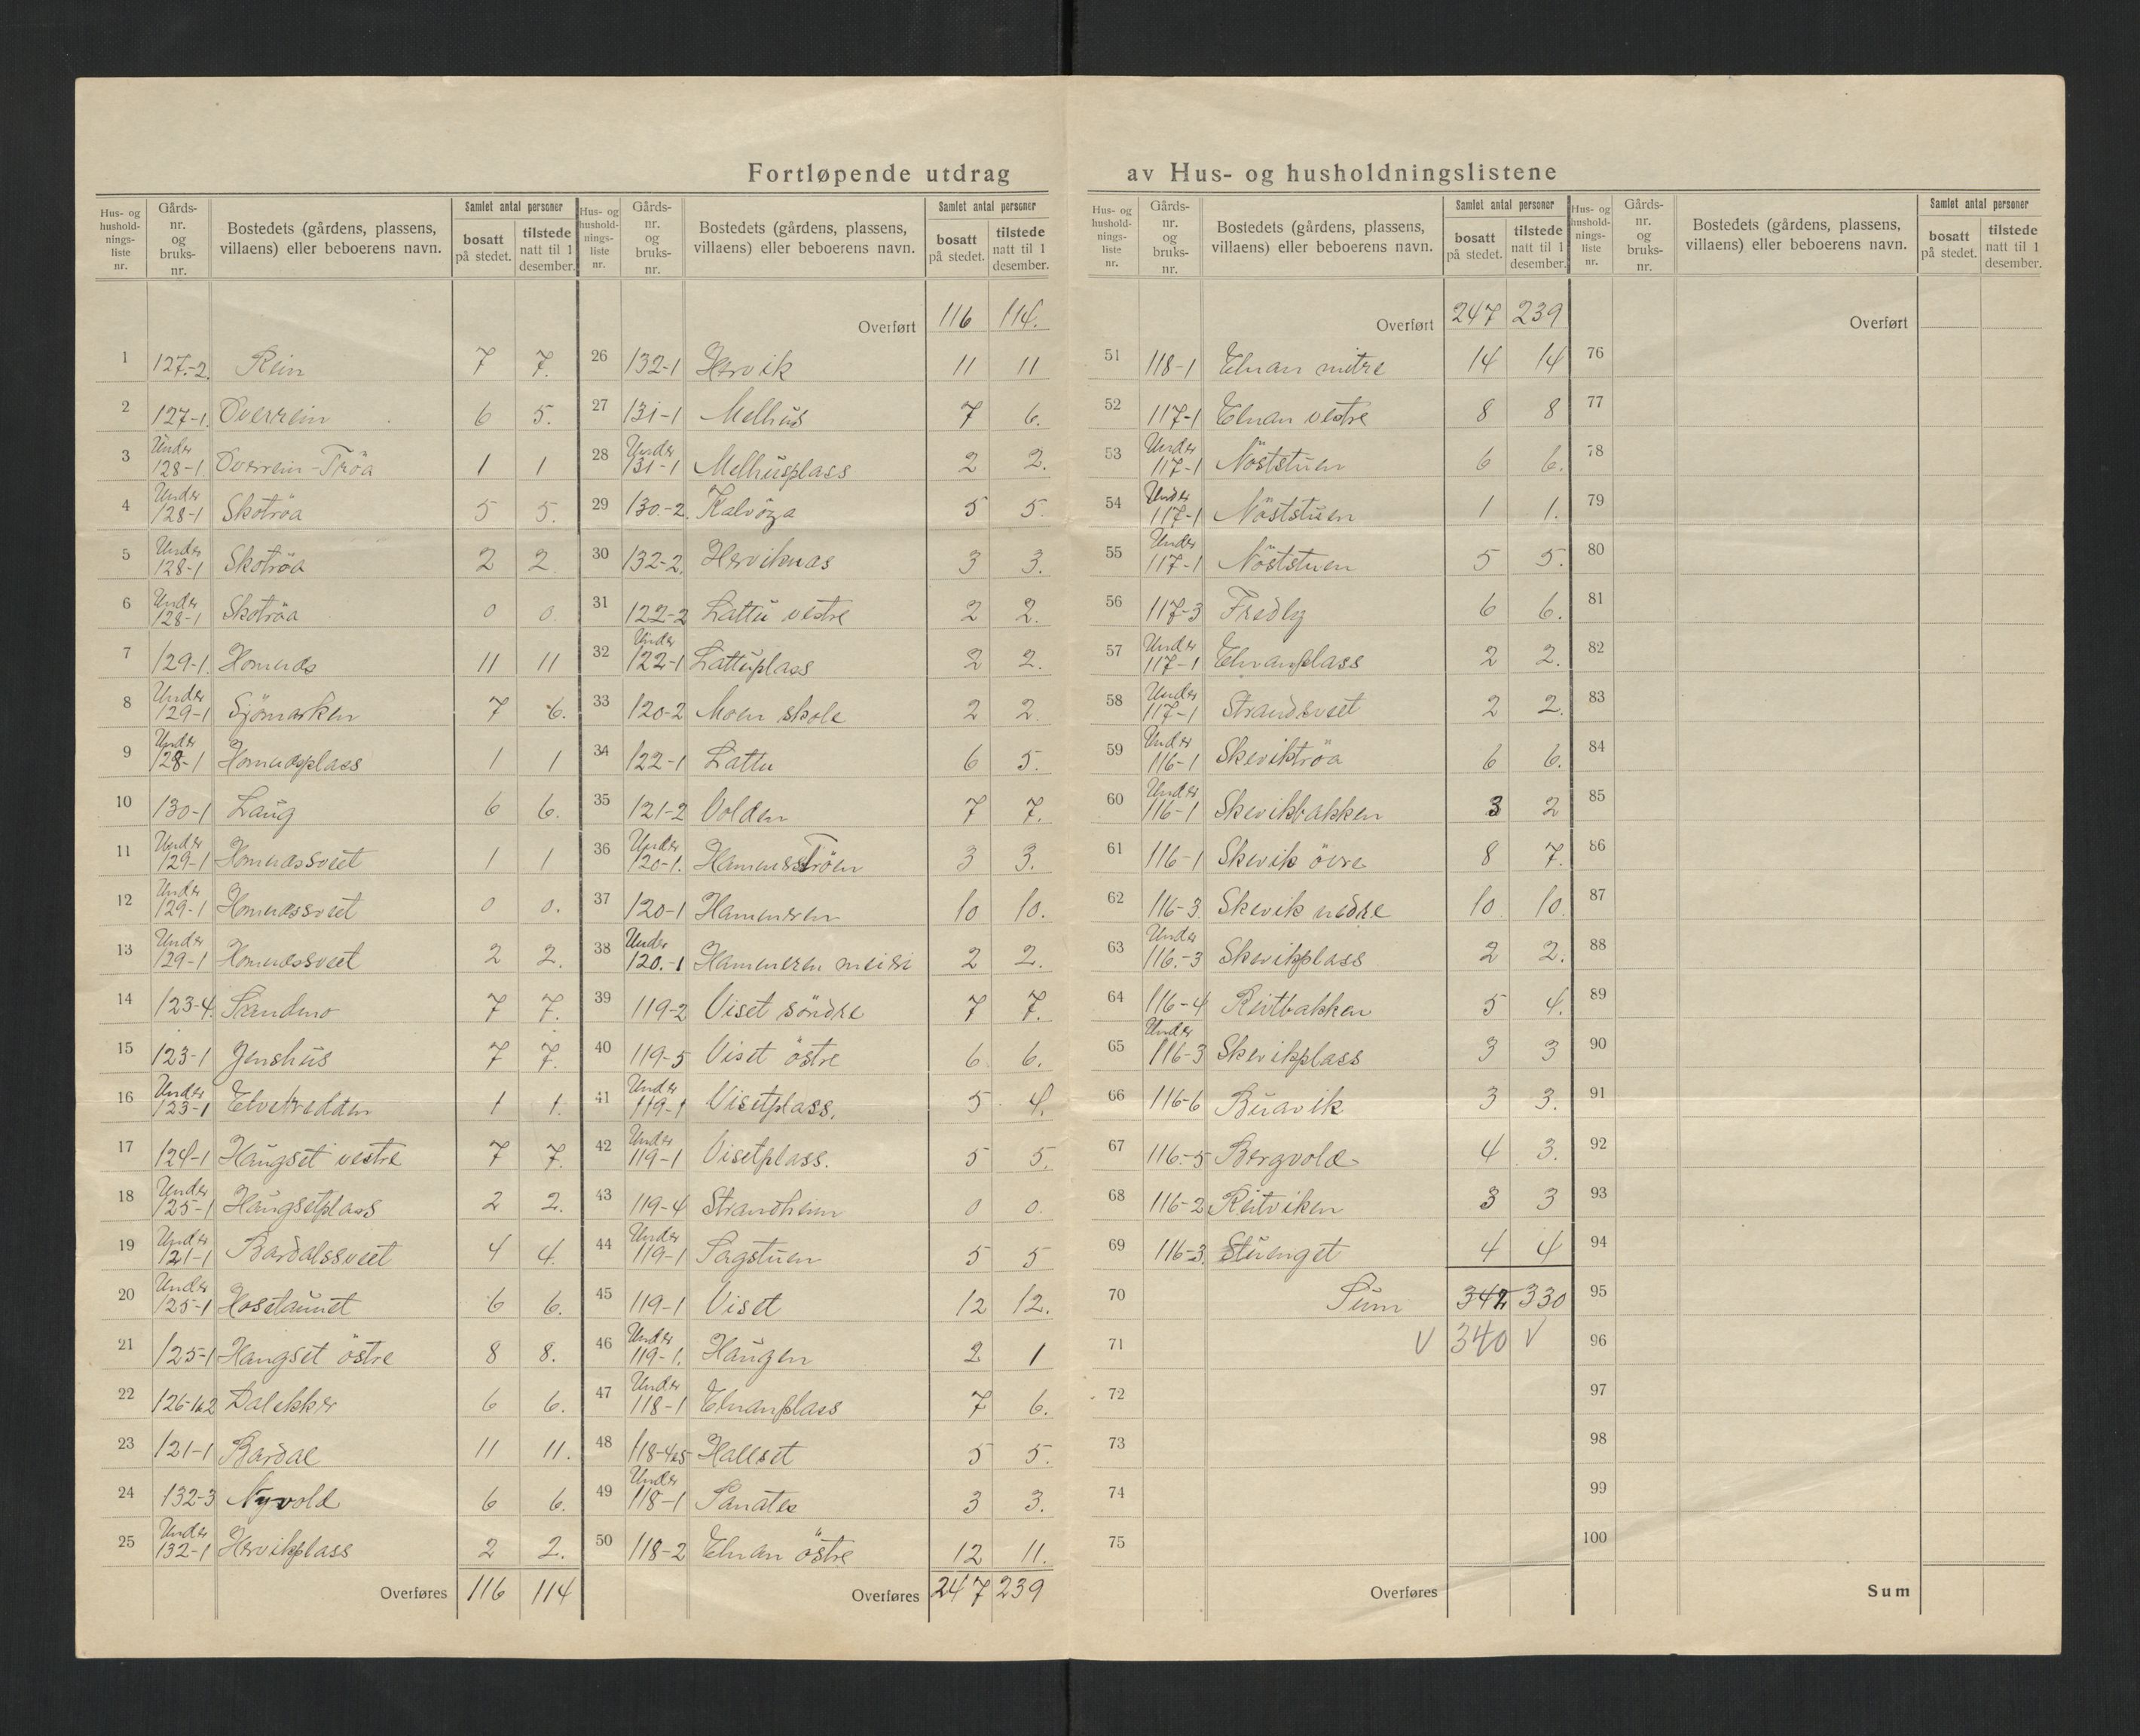 Fortløpende utdrag av Hus- og husholdningslistene
Hus- og hushold- nings- liste nr. Gårds- nr. og bruks- nr. Bostedets (gårdens, plassens, villaens) eller beboerens navn. Samlet antal personer bosatt på stedet. tilstede natt til 1 desember.
1 127.-2. Rein 7 7.
2 127-1. Overrein 6 5.
3 Under 128-1. Overrein-Tröa 1 1
4 Under 128-1 Skotröa 5 5.
5 Under 128-1 Skotröa 2 2
6 Under 128-1 Skotröa 0 0.
7 129-1. Homnes 11 11
8 Under 129-1 Sjömarken 7 6.
9 Under 128-1 Homnesplass 1 1
10 130-1 Laug 6 6.
11 Under 129-1 Homnessveet 1 1
12 Under 129-1 Homnessveet 0 0.
13 Under 129-1 Homnessveet 2 2.
14 123-4. Sandmo 7 7.
15 123-1 Jenshus 7 7.
16 Under 123-1 Elvebredden 1 1.
17 124-1 Haugset vestre 7 7.
18 Under 125-1 Haugsetplass 2 2.
19 Under 121-1 Bardalssveet 4 4.
20 Under 125-1 Hosetaunet 6 6.
21 125-1 Haugset östre 8 8.
22 126-1&2 Dalekker 6 6.
23 121-1 Bardal 11 11.
24 132-3 Nyvold 6 6.
25 Under 132-1 Hervikplass 2 2.
Overføres 116 114
Hus- og hushold- nings- liste nr. Gårds- nr. og bruks- nr. Bostedets (gårdens, plassens, villaens) eller beboerens navn. Samlet antal personer bosatt på stedet. tilstede natt til 1 desember.
Overført 116 114.
26 132-1 Hervik 11 11
27 131-1 Melhus 7 6.
28 Under 131-1 Melhusplass 2 2.
29 130.-2. Kalvöya 5 5.
30 132-2. Herviknes 3 3.
31 122-2 Lattu vestre 2 2.
32 Under 122-1 Lattuplass 2 2.
33 120-2 Moen skole 2 2.
34 122-1 Lattu 6 5.
35 121-2 Volden 7 7.
36 Under 120-1. Hammerströen 3 3.
37 120-1 Hammeren 10 10.
38 Under 120.-1 Hammeren meieri 2 2.
39 119-2 Viset söndre 7 7.
40 119-5 Viset östre 6 6.
41 Under 119-1 Visetplass. 5 4.
42 Under 119-1 Visetplass. 5 5.
43 119-4 Strandheim 0 0.
44 Under 119-1 Sagstuen 5 5
45 119-1 Viset 12 12.
46 Under 119-1. Haugen 2 1
47 Under 118-1 Elnanplass 7 6.
48 118-4&5 Hallset 5 5.
49 Under 118-1 3 3.
50 118-2 Elnan östre 12 11.
Overføres 247 239
Hus- og hushold- nings- liste nr. Gårds- nr. og bruks- nr. Bostedets (gårdens, plassens, villaens) eller beboerens navn. Samlet antal personer bosatt på stedet. tilstede natt til 1 desember.
Overført 247 239
51 118-1 Elnan mitre 14 14
52 117-1 Elnan vestre 8 8
53 Under 117-1 Nöststuen 6 6.
54 Under 117-1 Nöststuen 1 1.
55 Under 117-1 Nöststuen 5 5.
56 117-3 Fredly 6 6.
57 Under 117-1 Elnanplass 2 2.
58 Under 117-1 Strandsveet 2 2.
59 Under 116-1 Skeviktröa 6 6.
60 Under 116-1 Skevikbakken 3 2
61 116-1 Skevik övre 8 7.
62 116-3. Skevik nedre 10 10.
63 Under 116.-3 Skevikplass 2 2.
64 116-4 Reitbakken 5 4.
65 Under 116-3 Skevikplass 3 3
66 116-6 Buavik 3 3.
67 116.-5 Bergvold 4 3.
68 116-2 Reitviken 3 3
69 116-3. Stuenget 4 4
70 Sum 342 330
71 V 340 V
72
73
74
75
Overføres
Hus- og hushold- nings- liste nr. Gårds- nr. og bruks- nr. Bostedets (gårdens, plassens, villaens) eller beboerens navn. Samlet antal personer bosatt på stedet. tilstede natt til 1 desember.
Overført
76
77
78
79
80
81
82
83
84
85
86
87
88
89
90
91
92
93
94
95
96
97
98
99
100
Sum